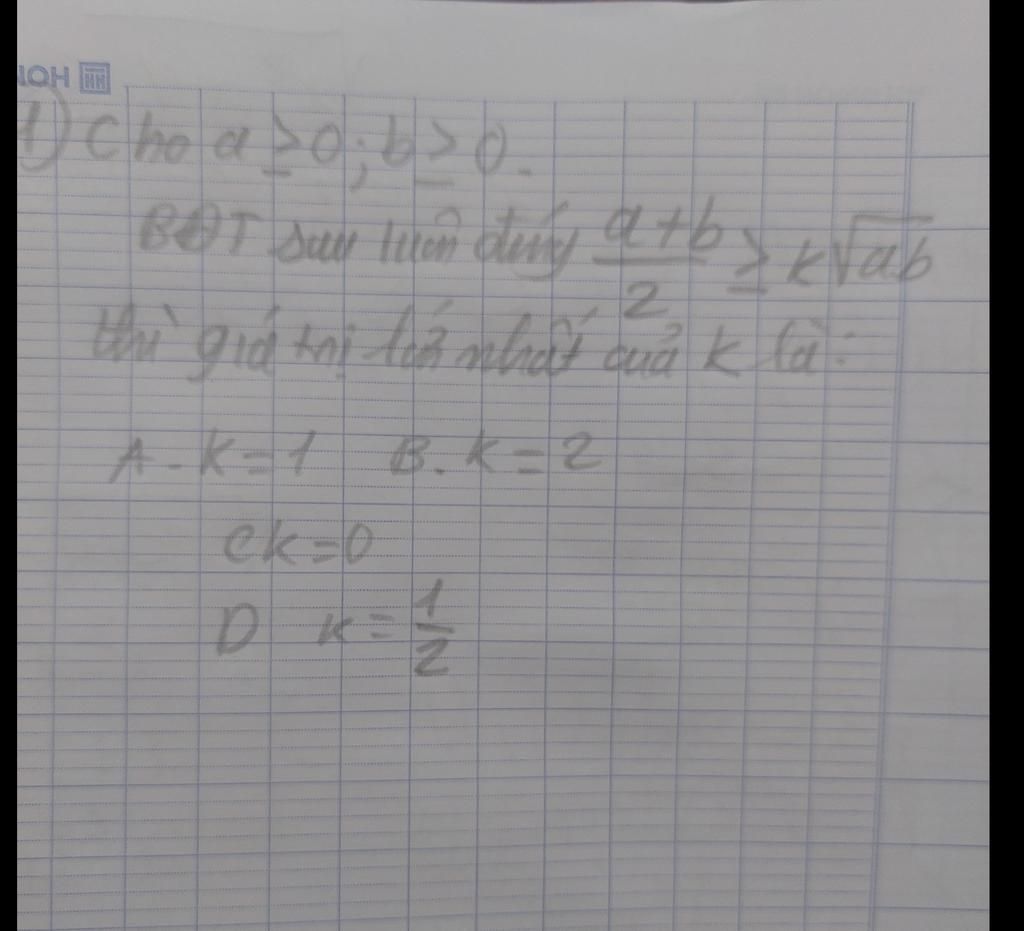 HỌN
1) Cho a ≥ 0; b ≥ 0.
BĐT sau luôn đúng \frac{a+b}{2} ≥ k√ab
thì giá trị lớn nhất của k là:
A. k = 1 B. k = 2
C k = 0
D k = \frac{1}{2}